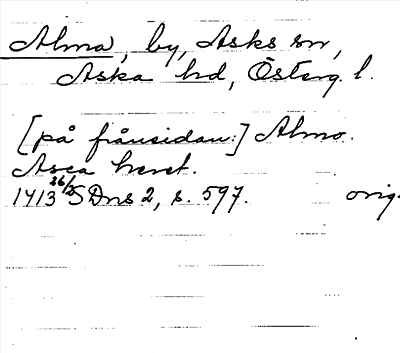 Alma, by, Asks sn,
Aska hd, Österg. l.
[på frånsidan:] Almo.
Asca heret.
1413 26/5 SDns 2, s. 597. orig.